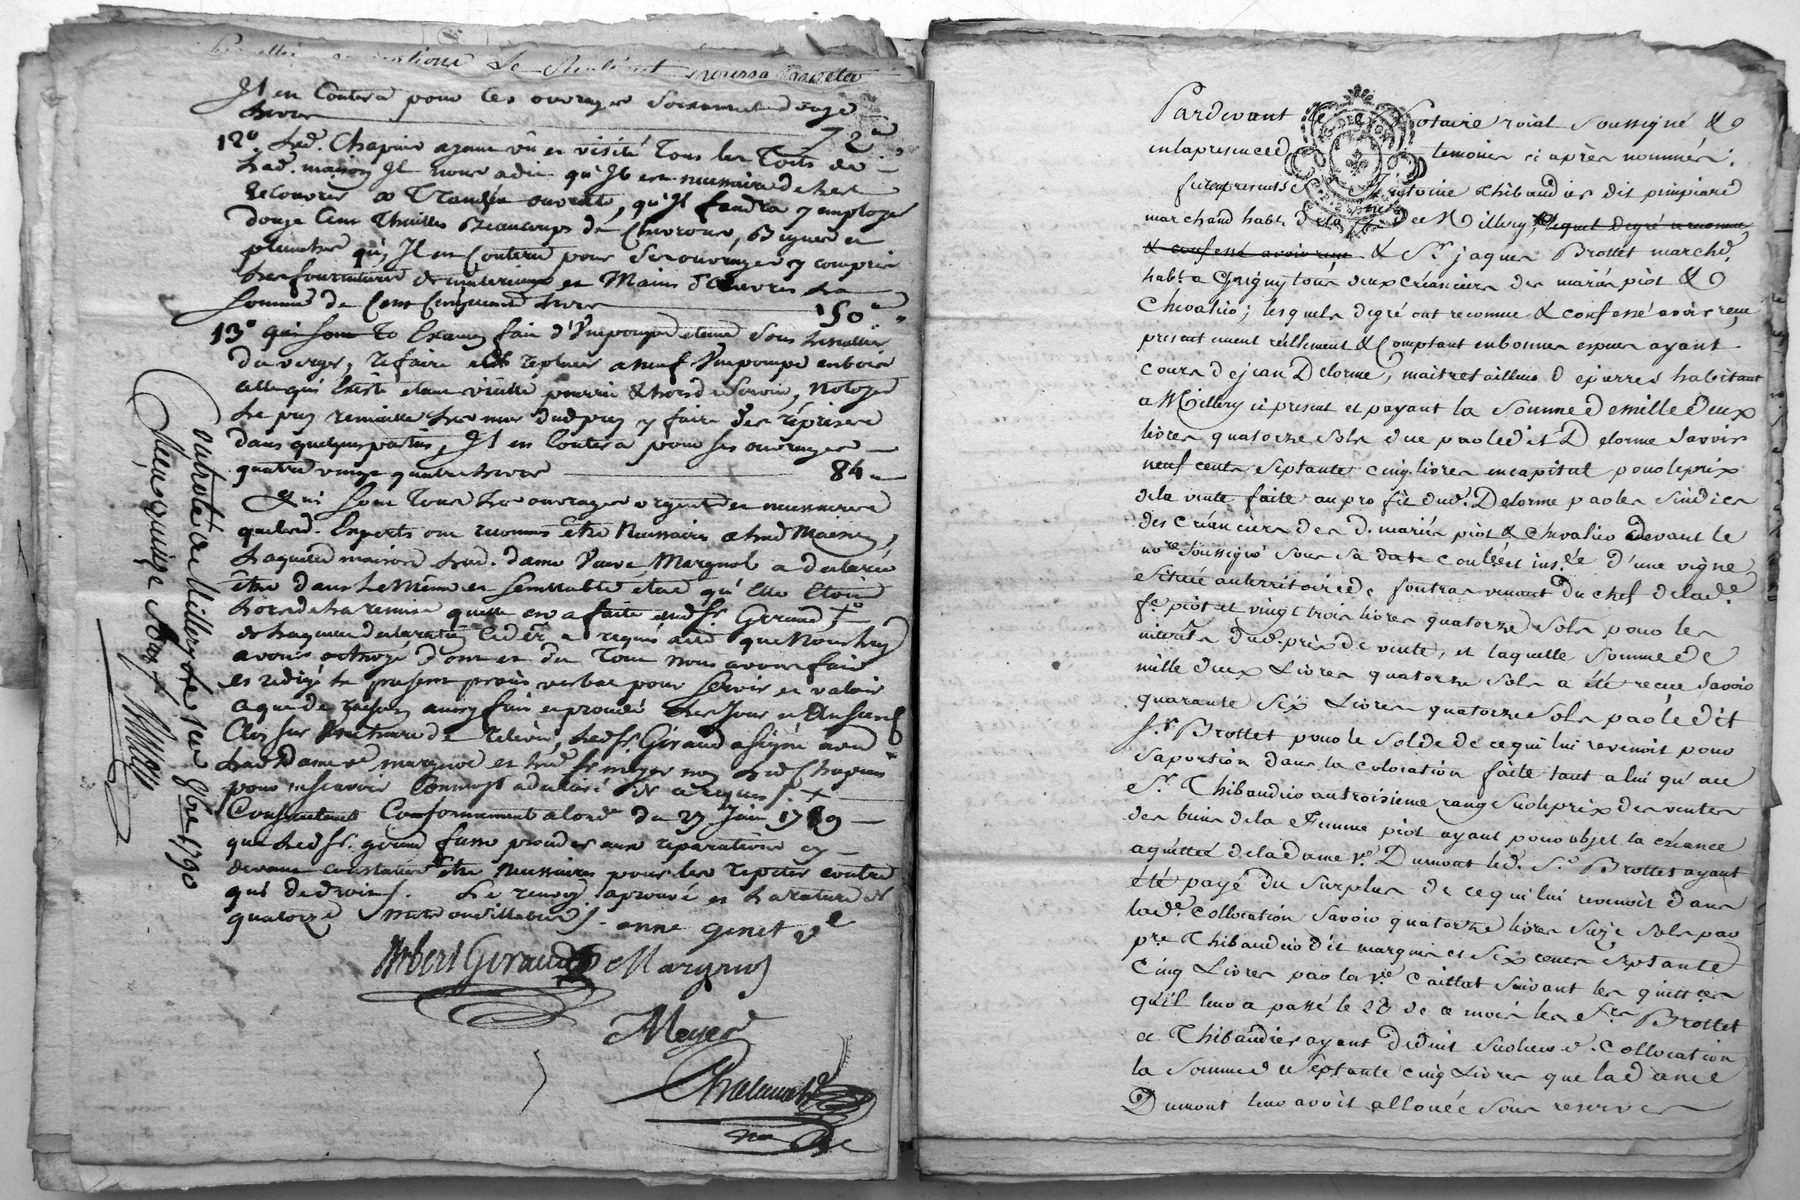 Il en Coutera pour ces ouvrages Soixante douze
livres 72"
12° Led. Chapuis ayant vû et visité Tous les Toits de
lad. maison Il nous a dit qu'Il est necessaire de les
Recouvrir a Tranchée ouverte, qu'Il faudra y employer
douze Cent Thuilles Beaucoup de Chevrons,
planches qu'Il en Coutera pour Ses ouvrages y compris
Les fournitures de materiaux et Mains d'Oeuvres La
Somme de Cent Cinquante livres 150"
13°
du verger, refaire et replacer a neuf Une pompe en bois
celle qui Existe etant vieille pourrie & hors de Service, nétoyer
Le puy remailler Les murs Dud. puy y faire des réprises
dans quelques parties, Il en Coutera pour ses ouvrages
quatre vingt quatre livres 84"
Qui Sont Tous Les ouvrages urgents et necessaires
que Led. Experts ont reconnu être Necessaires a lad. Maison,
Laquelle maison Lad. dame Veuve Margnol a déclaré
être dans Le Même et Semblable état qu'Elle Etoit
Lors de La remise qu'elle en a faite aud. Sr. Giraud
de Laquelle déclaration led. Sr. a requis acte que Nous Luy
avons octroyé dont et du Tout nous avons fait
et rédigé Le present procès verbal pour Servir et valoir
a que de raison ainsy fait et procédé Les Jour et An susd.
Clos sur de relevée, Led. Sr. Giraud a Signé avec
Lad. Dame ve. margnol et Led. Sr. meyer non Led. Chapuis
pour ne Scavoir Comme Il a déclaré de ce requis
Consentant Conformement a lord. du 27 Juin 1789
que Led. Sr. giraud fasse proceder aux reparations cy
devant constatées être Necessaires pour les repeter contre
qui de droit. Le renvoy aprouvé et La rature de
quatorze mots
anne genet ve
Robert Giraud Margnol
Meyer
Chalamel
nre
Controlé a Millery le 1er 8bre 1790
Reçu quinze Sols
Pardevant le Notaire roial Soussigné &
en la presence des temoins ci après nommés;
furent presents Sr. Antoine Thibaudier dit pimpiare
marchand habt. de la pse. de Millery, lequel de gré a reconnu
& confessé avoir reçu & Sr. jaques Brottet marchd.
habt. a Grigny tous deux créanciers des mariés piot &
Chevalier; lesquels de gré ont reconnu & confessé avoir reçu
présentement réellement & Comptant en bonnes especes ayant
cours de jean Delorme, maitre tailleur d e pierres habitant
a Millery ci présent et payant la Somme de mille deux
livres quatorze sols due par ledit Delorme Savoir
neuf cents Septante cinq livres en capital pour le prix
de la vente faite au profit dud. Delorme par les Sindics
des Créanciers des d. mariés piot & Chevalier devant le
nore. soussigné sous sa date controlée et insée. d'une vigne
située au territoire de fontras venant du chef de lade.
fe. piot et vingt trois livres quatorze sols pour les
interêts dud. prix de vente, et laquelle Somme de
mille deux Livres quatorze sols a été reçue Savoir
quarante Six Livres quatorze Sols par ledit
Sr. Brottet pour le solde de ce qui lui revenoit pour
Sa portion dans la colocation faite tant a lui qu'au
Sr. Thibaudier au troisieme rang Sur le prix des ventes
des biens de la femme piot ayant pour objet la créance
aquittée de la dame ve. Dumont led. Sr. Brottet ayant
été payé du surplus de ce qui lui revenoit dans
lade. Collocation Savoir quatorze livres seize sols par
pre. Thibaudier dit marquis et six cents Septante
Cinq Livres par la ve. Caillat Suivant les quittces.
qu'il leur a passé le 28 de ce mois les Srs. Brottet
et Thibaudier ayant Déduit sur leur d. Collocation
la Somme de Septante cinq Livres que la dame
Dumont leur avoit allouée sous reserves